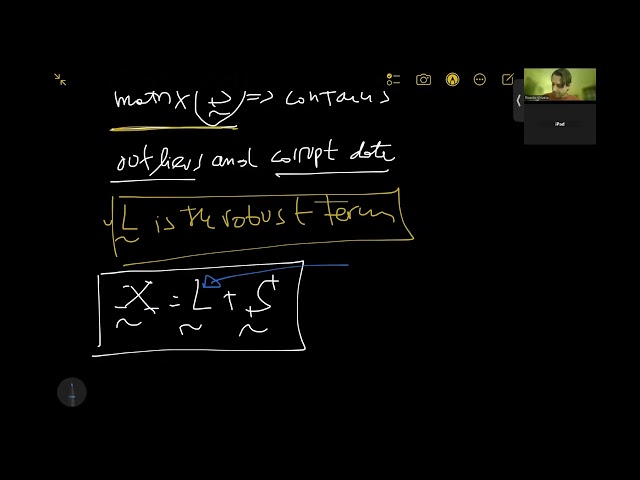 matrix (S) => contains
outliers and corrupt data
L is the robust Term
X = L + S
iPad